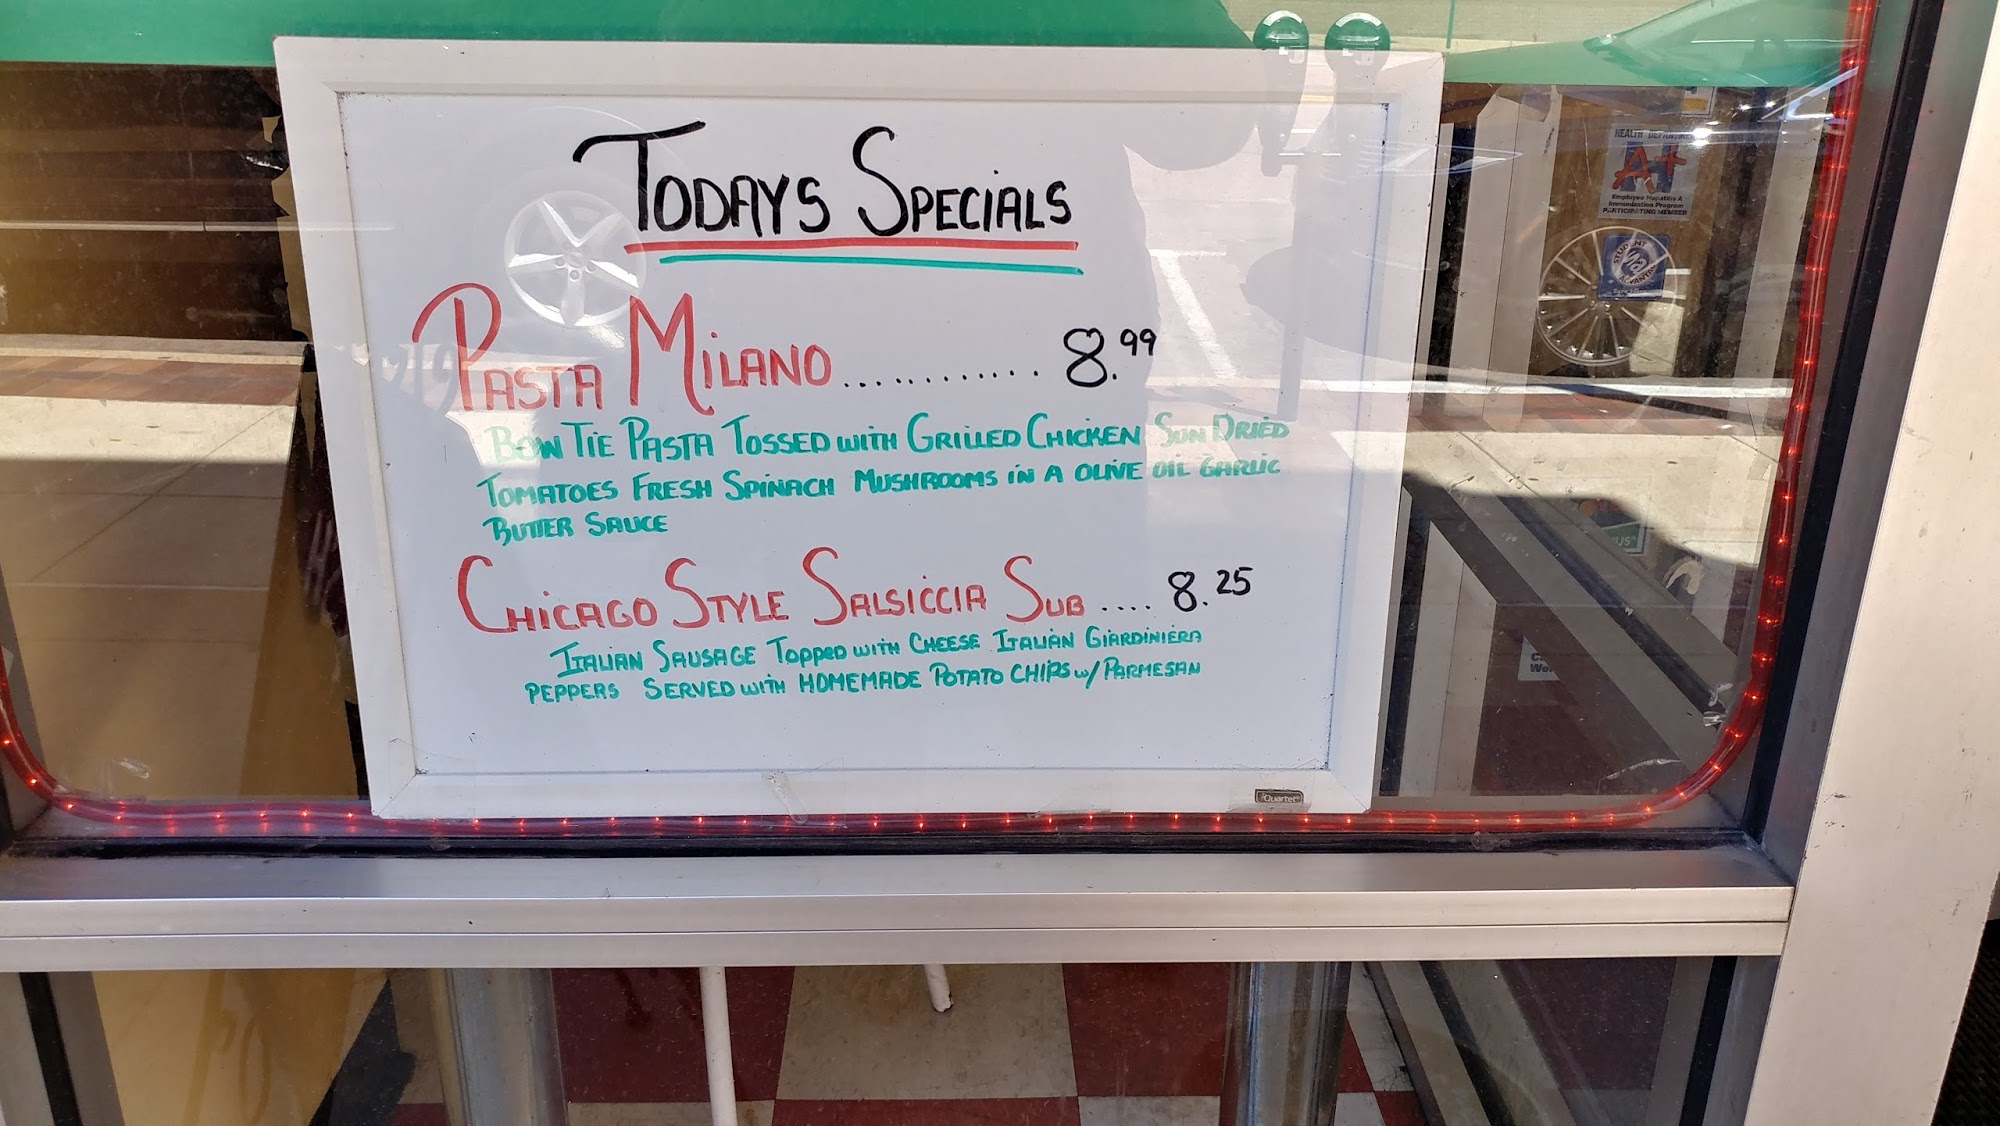 TODAYS SPECIALS
PASTA MILANO ............ 8.99
BOW TIE PASTA TOSSED WITH GRILLED CHICKEN SUN DRIED
TOMATOES FRESH SPINACH MUSHROOMS IN A OLIVE OIL GARLIC
BUTTER SAUCE
CHICAGO STYLE SALSICCIA SUB .... 8.25
ITALIAN SAUSAGE TOPPED WITH CHEESE ITALIAN GIARDINIERA
PEPPERS SERVED WITH HOMEMADE POTATO CHIPS w/ PARMESAN
Quartet
HEALTH
A+
Employee Hepatitis A
Immunization Program
PARTICIPATING MEMBER
STUDENT
ADVANTAGE